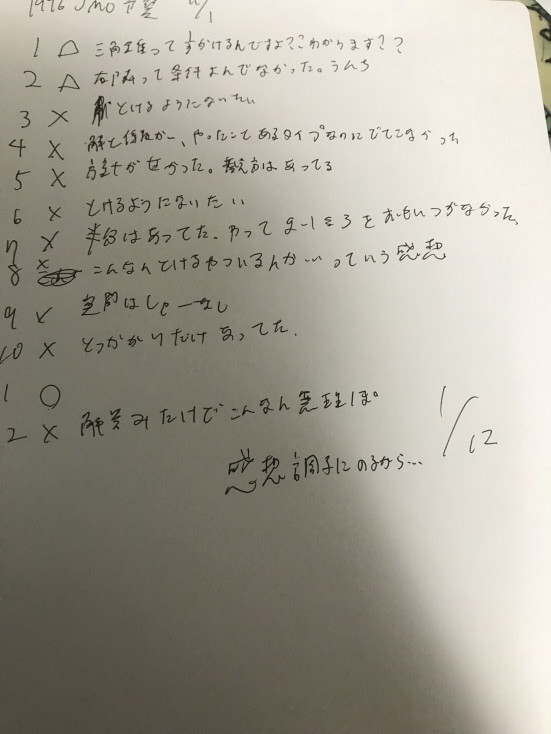 1996 JMO予選 11/1
1 △ 三角錐って1/3かけるんですよ？わかります？？
2 △ 右隣って条件よんでなかった。うんち
3 × とけるようになりたい
4 × 解と係数かー、やったことあるタイプなのにでてこなかった
5 × 方針が甘かった。考え方はあってる
6 × とけるようになりたい
7 × 半分はあってた。わって
8 × こんなんとけるやついるんか…っていう感想
9 × 空間はしんーなし
10 × とっかかりだけあってた。
1 ○
2 × 解答みたけどこんなん無理ぽ。
1/12
感想 調子にのるから…